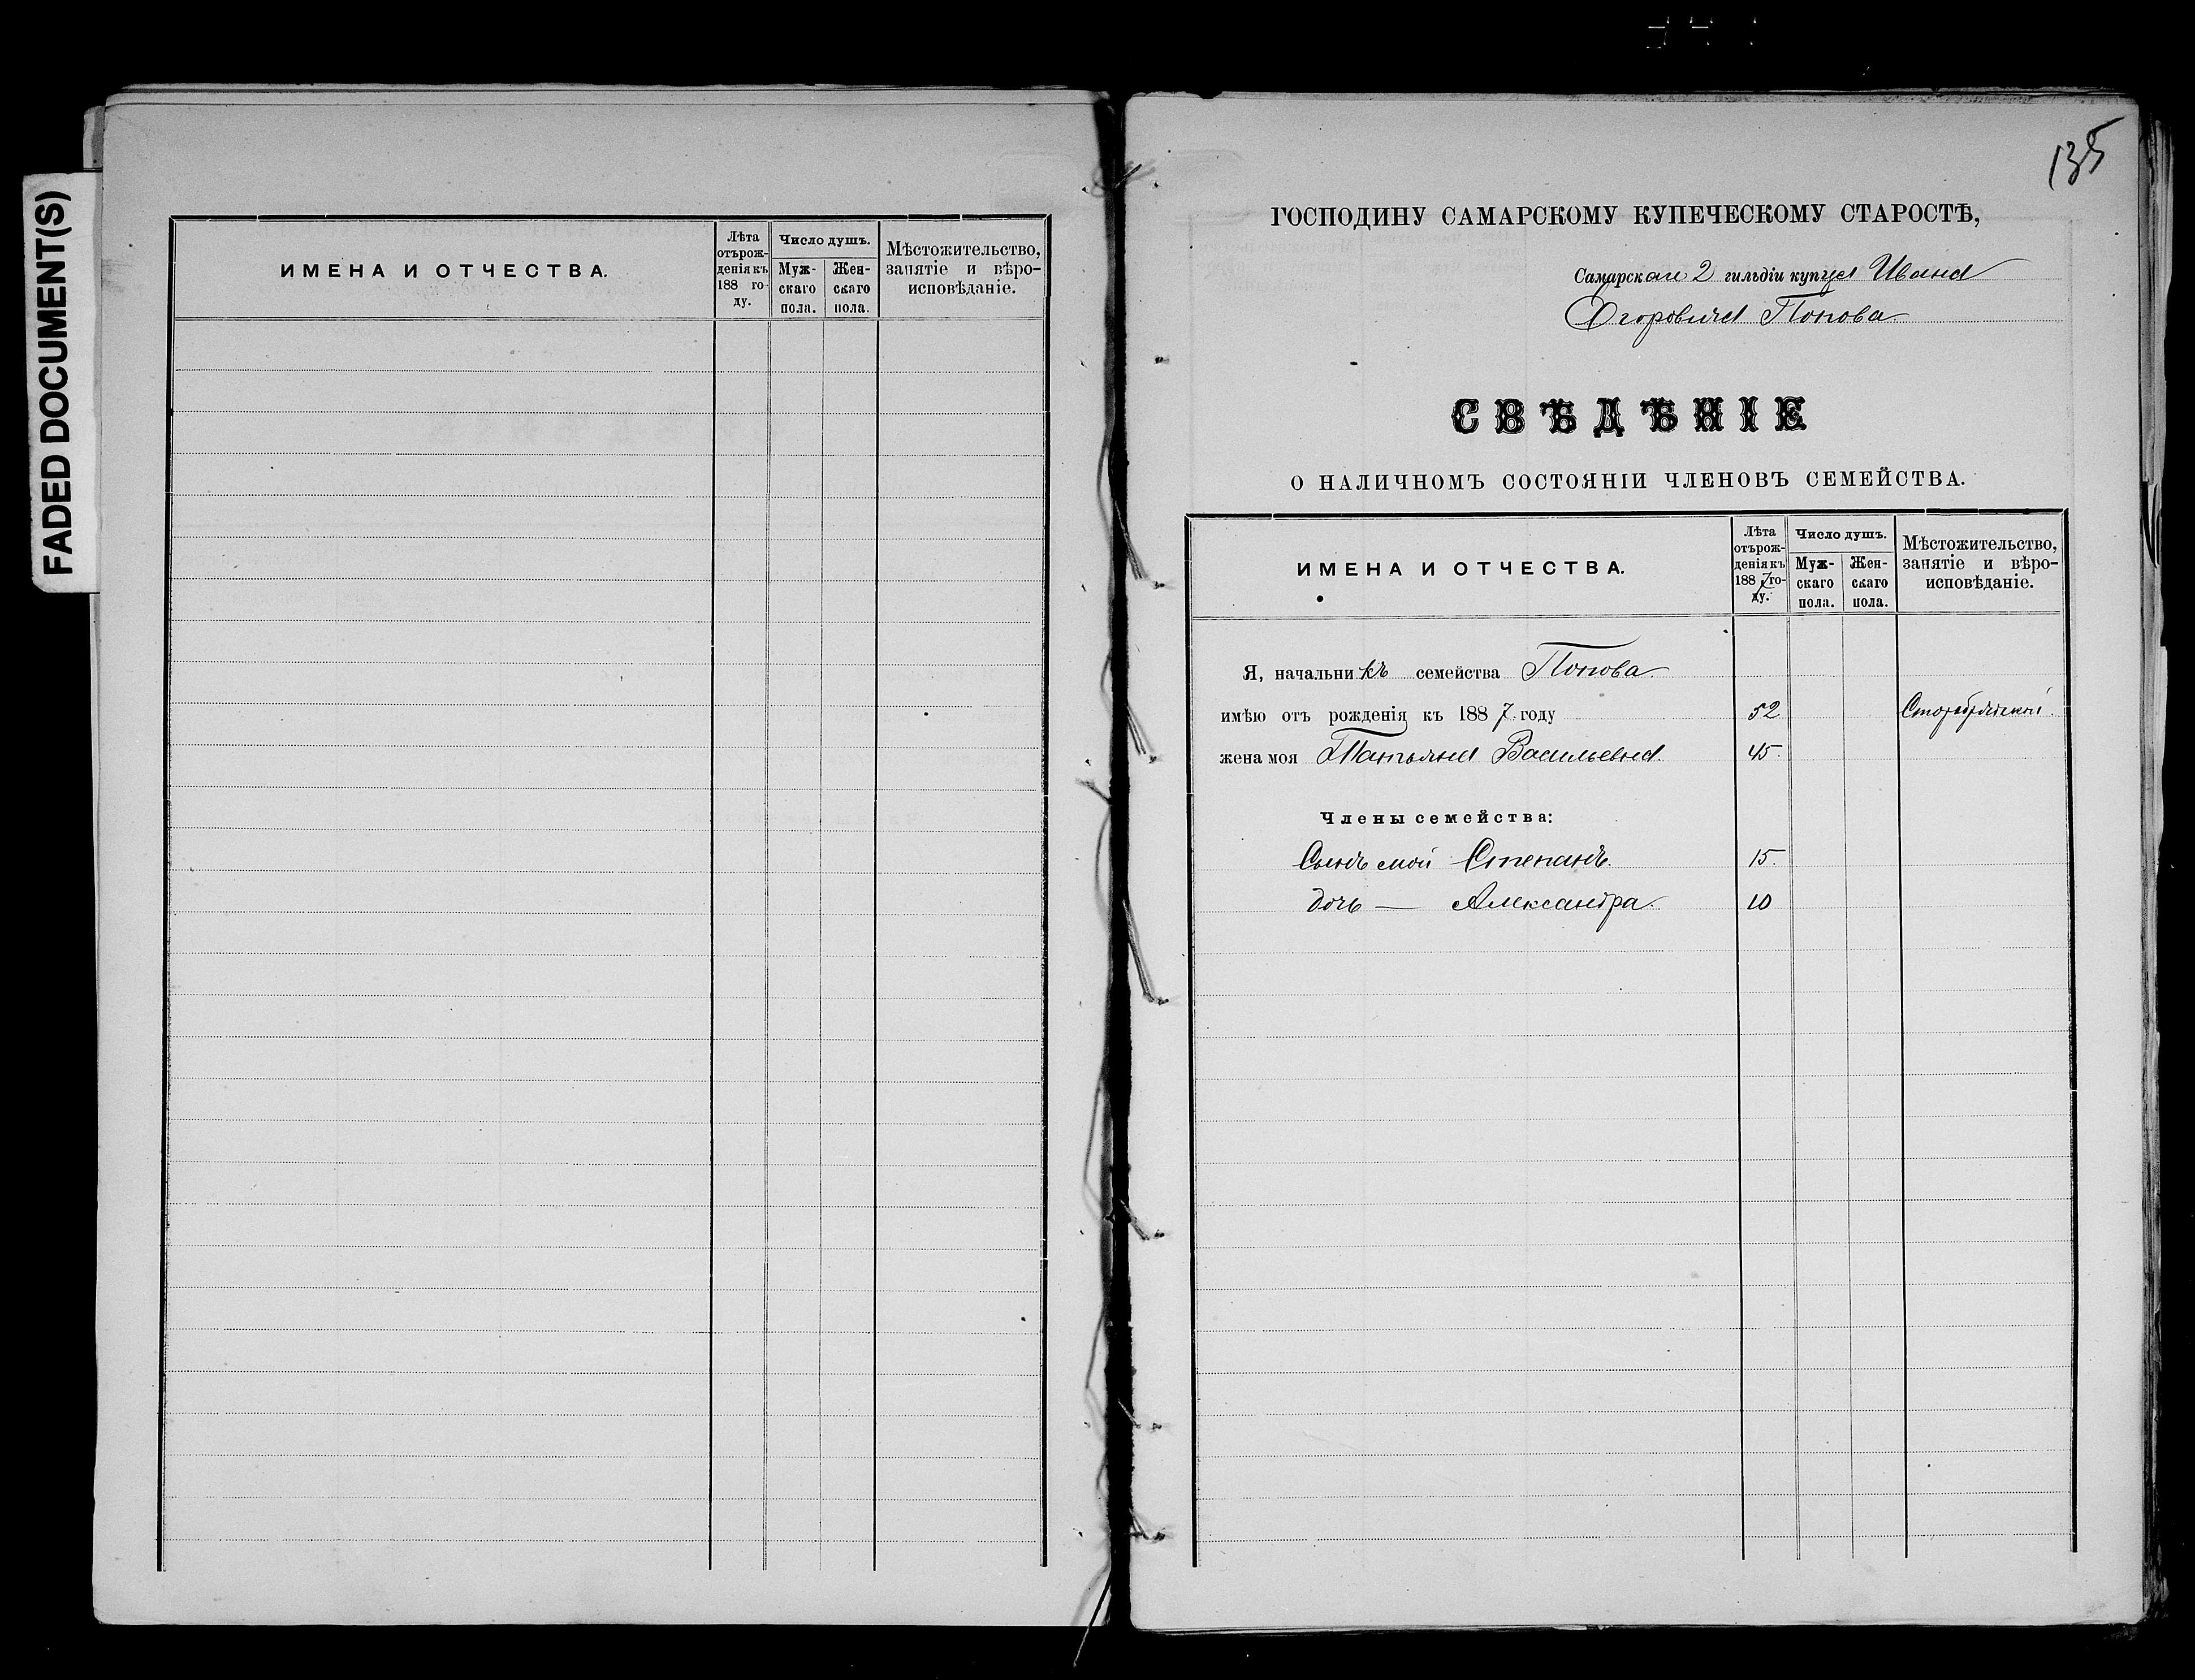 FADED DOCUMENT(S)
ИМЕНА И ОТЧЕСТВА.
Лѣта отърожденія къ 188 году.
Число душъ.
Мужскаго пола.
Женскаго пола.
Мѣстожительство, занятіе и вѣроисповѣданіе.
135
ГОСПОДИНУ САМАРСКОМУ КУПЕЧЕСКОМУ СТАРОСТѢ,
Самарскаго 2 гильдіи купца Ивана
Егоровича Попова
СВѢДѢНІЕ
О НАЛИЧНОМЪ СОСТОЯНІИ ЧЛЕНОВЪ СЕМЕЙСТВА.
ИМЕНА И ОТЧЕСТВА.
Лѣта отърожденія къ 1887 году.
Число душъ.
Мужскаго пола.
Женскаго пола.
Мѣстожительство, занятіе и вѣроисповѣданіе.
Я, начальникъ семейства Попова
имѣю отъ рожденія къ 1887 году 52
жена моя Татьяна Васильевна. 45
Члены семейства:
Сынъ мой Степанъ. 15
дочь — Александра. 10